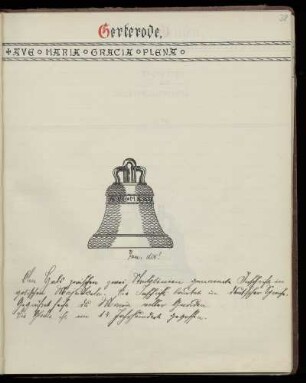 Gerterode.
✝AVE o MARIA o GRACIA o PLENA o
Am Hals zwischen zwei genannte Inschrift in
gotischen Die Inschrift lautet in deutscher Sprache:
Gegrüßet seist du Maria voller Gnaden
Die Glocke ist im 14. Jahrhundert gegossen.